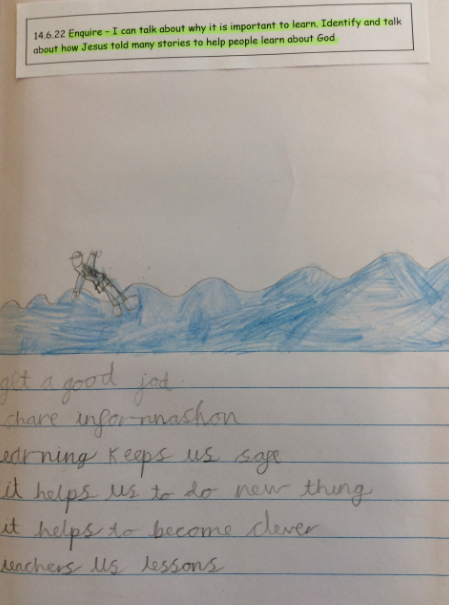 14.6.22 Enquire – I can talk about why it is important to learn. Identify and talk
about how Jesus told many stories to help people learn about God.
get a good jod.
share infornnashon
earning keeps us safe
it helps us to do new thing
it helps to become clever
teachers us lessons